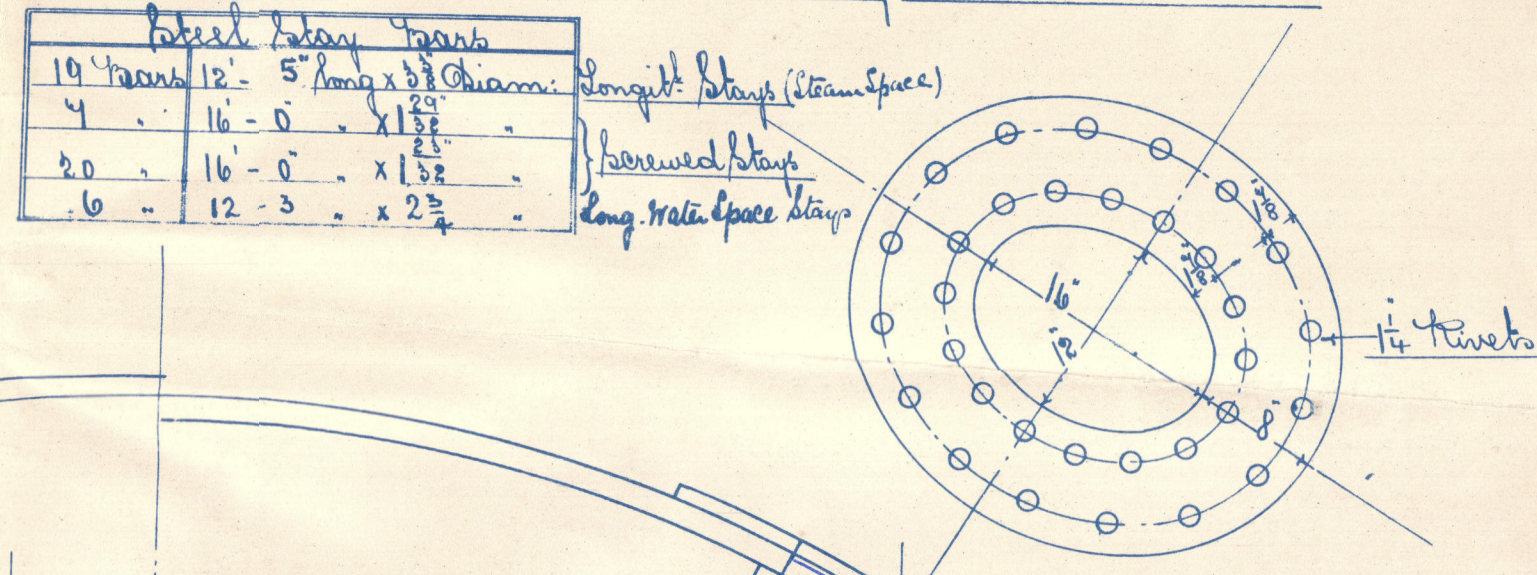 Steel Stay Bars
19 Bars 12'- 5" long x 3 3/8" Diam: Longitl. Stays (Steam Space)
7 " 16'- 0" " x 1 29/32" "
Screwed Stays
20 " 16'- 0" " x 1 "
6 " 12 - 3 " x 2 3/4 " Long. Water Space Stays
16"
12"
8"
1 1/4" Rivets